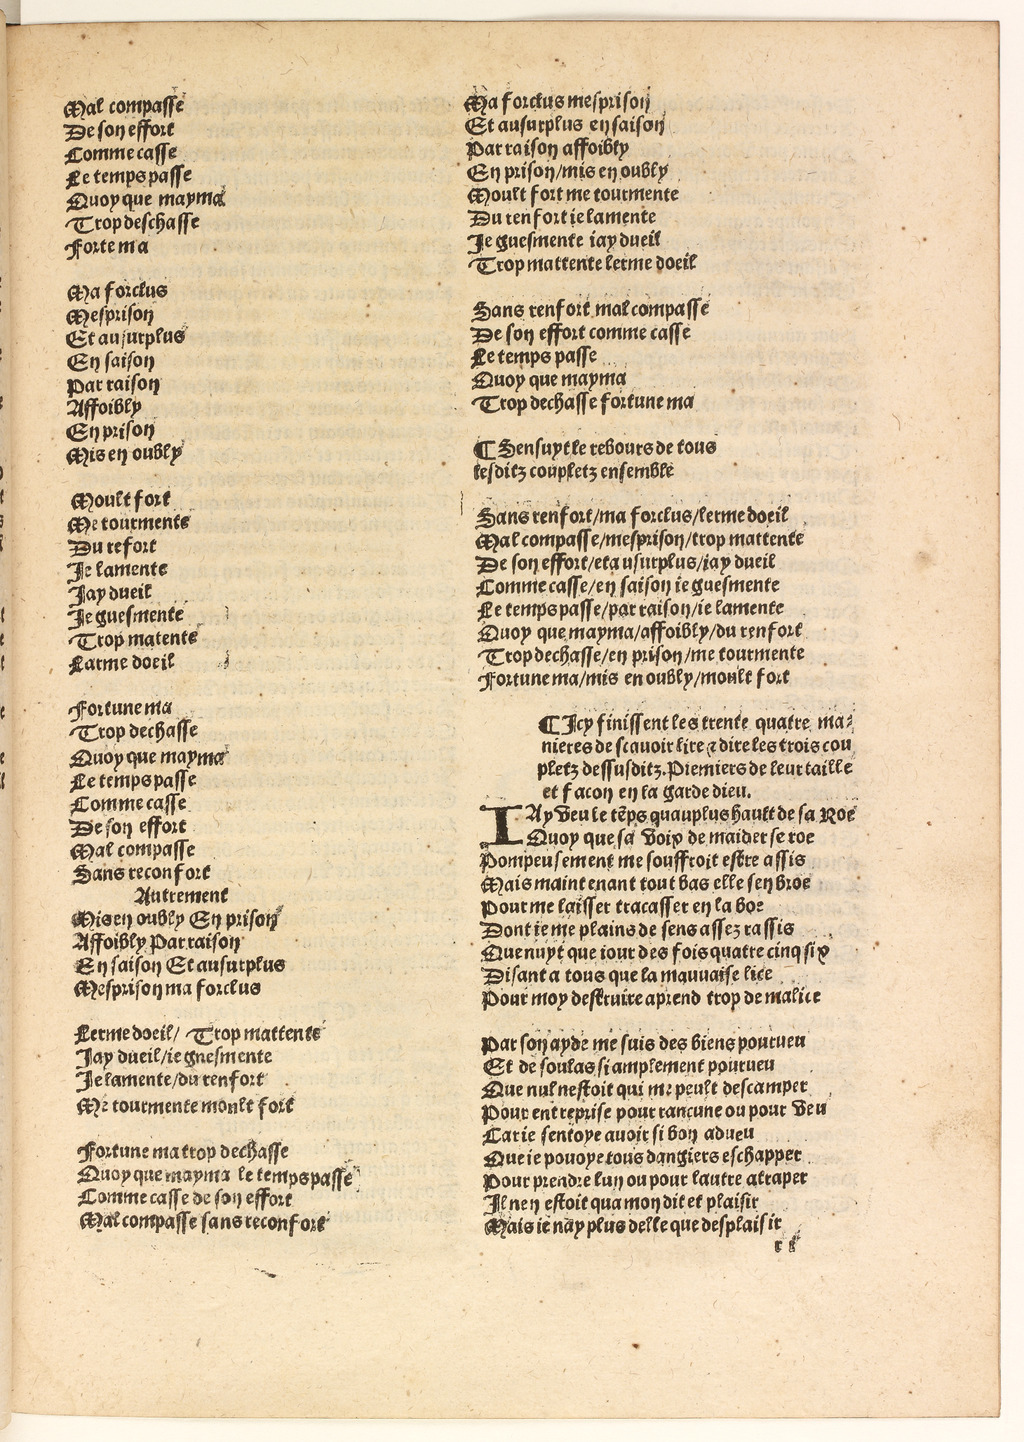 Mal compasse
De son effort
Comme casse
Le temps passe
Quoy que mayma
Trop deschasse
Forte ma
Ma forclus
Mesprison
Et ausurplus
En saison
Par raison
Affoibly
En prison
Mis en oubly
Moult fort
Me tourmente
Du refort
Je lamente
Jay dueil
Je guesmente
Trop matente
Larme doeil
Fortune ma
Trop dechasse
Quoy que mayma
Le temps passe
Comme casse
De son effort
Mal compasse
Sans reconfort
Autrement
Mis en oubly En prison
Affoibly Par raison
En saison Et ausurplus
Mesprison ma forclus
Lerme doeil/ Trop mattente
Jay dueil/ie guesmente
Je lamente/du renfort
Me tourmente moult fort
Fortune ma trop dechasse
Quoy que mayma le temps passe
Comme casse de son effort
Mal compasse sans reconfort
Ma forclus mesprison
Et ausurplus en saison
Par raison affoibly
En prison/mis en oubly
Moult fort me tourmente
Du renfort ie lamente
Je guesmente iay dueil
Trop mattente lerme doeil
Sans renfort mal compasse
De son effort comme casse
Le temps passe
Quoy que mayma
Trop dechasse fortune ma
¶ Sensuyt le rebours de tous
lesditz coupletz ensemble
Sans renfort/ma forclus/lerme doeil
Mal compasse/mesprison/trop mattente
De son effort/et ausurplus/iay dueil
Comme casse/en saison ie guesmente
Le temps passe/par raison/ie lamente
Quoy que mayma/affoibly/du renfort
Trop dechasse/en prison/me tourmente
Fortune ma/mis en oubly/moult fort
¶ Icy finissent les trente quatre ma⸗
nieres de scauoir lire ⁊ dire les trois cou
pletz dessusditz. Premiers de leur taille
et facon en la garde dieu.
IAy veu le tēps quau plus hault de sa Roe
Quoy que sa voix de maider se roe
Pompeusement me souffroit estre assis
Mais maintenant tout bas elle sen broe
Pour me laisser tracasser en la boe
Dont ie me plains de sens assez rassis
Que nuyt que iour des fois quatre cinq six
Disant a tous que la mauuaise lice
Pour moy destruire aprend trop de malice
Par son ayde me suis des biens pourueu
Et de soulas si amplement pourueu
Que nul nestoit qui me peult descamper
Pour entreprise pour rancune ou pour veu
Car ie sentoye auoir si bon adueu
Que ie pouoye tous dangiers eschapper
Pour prendre lun ou pour lautre atraper
Il nen estoit qua mon dit et plaisir
Mais ie nay plus delle que desplaisir